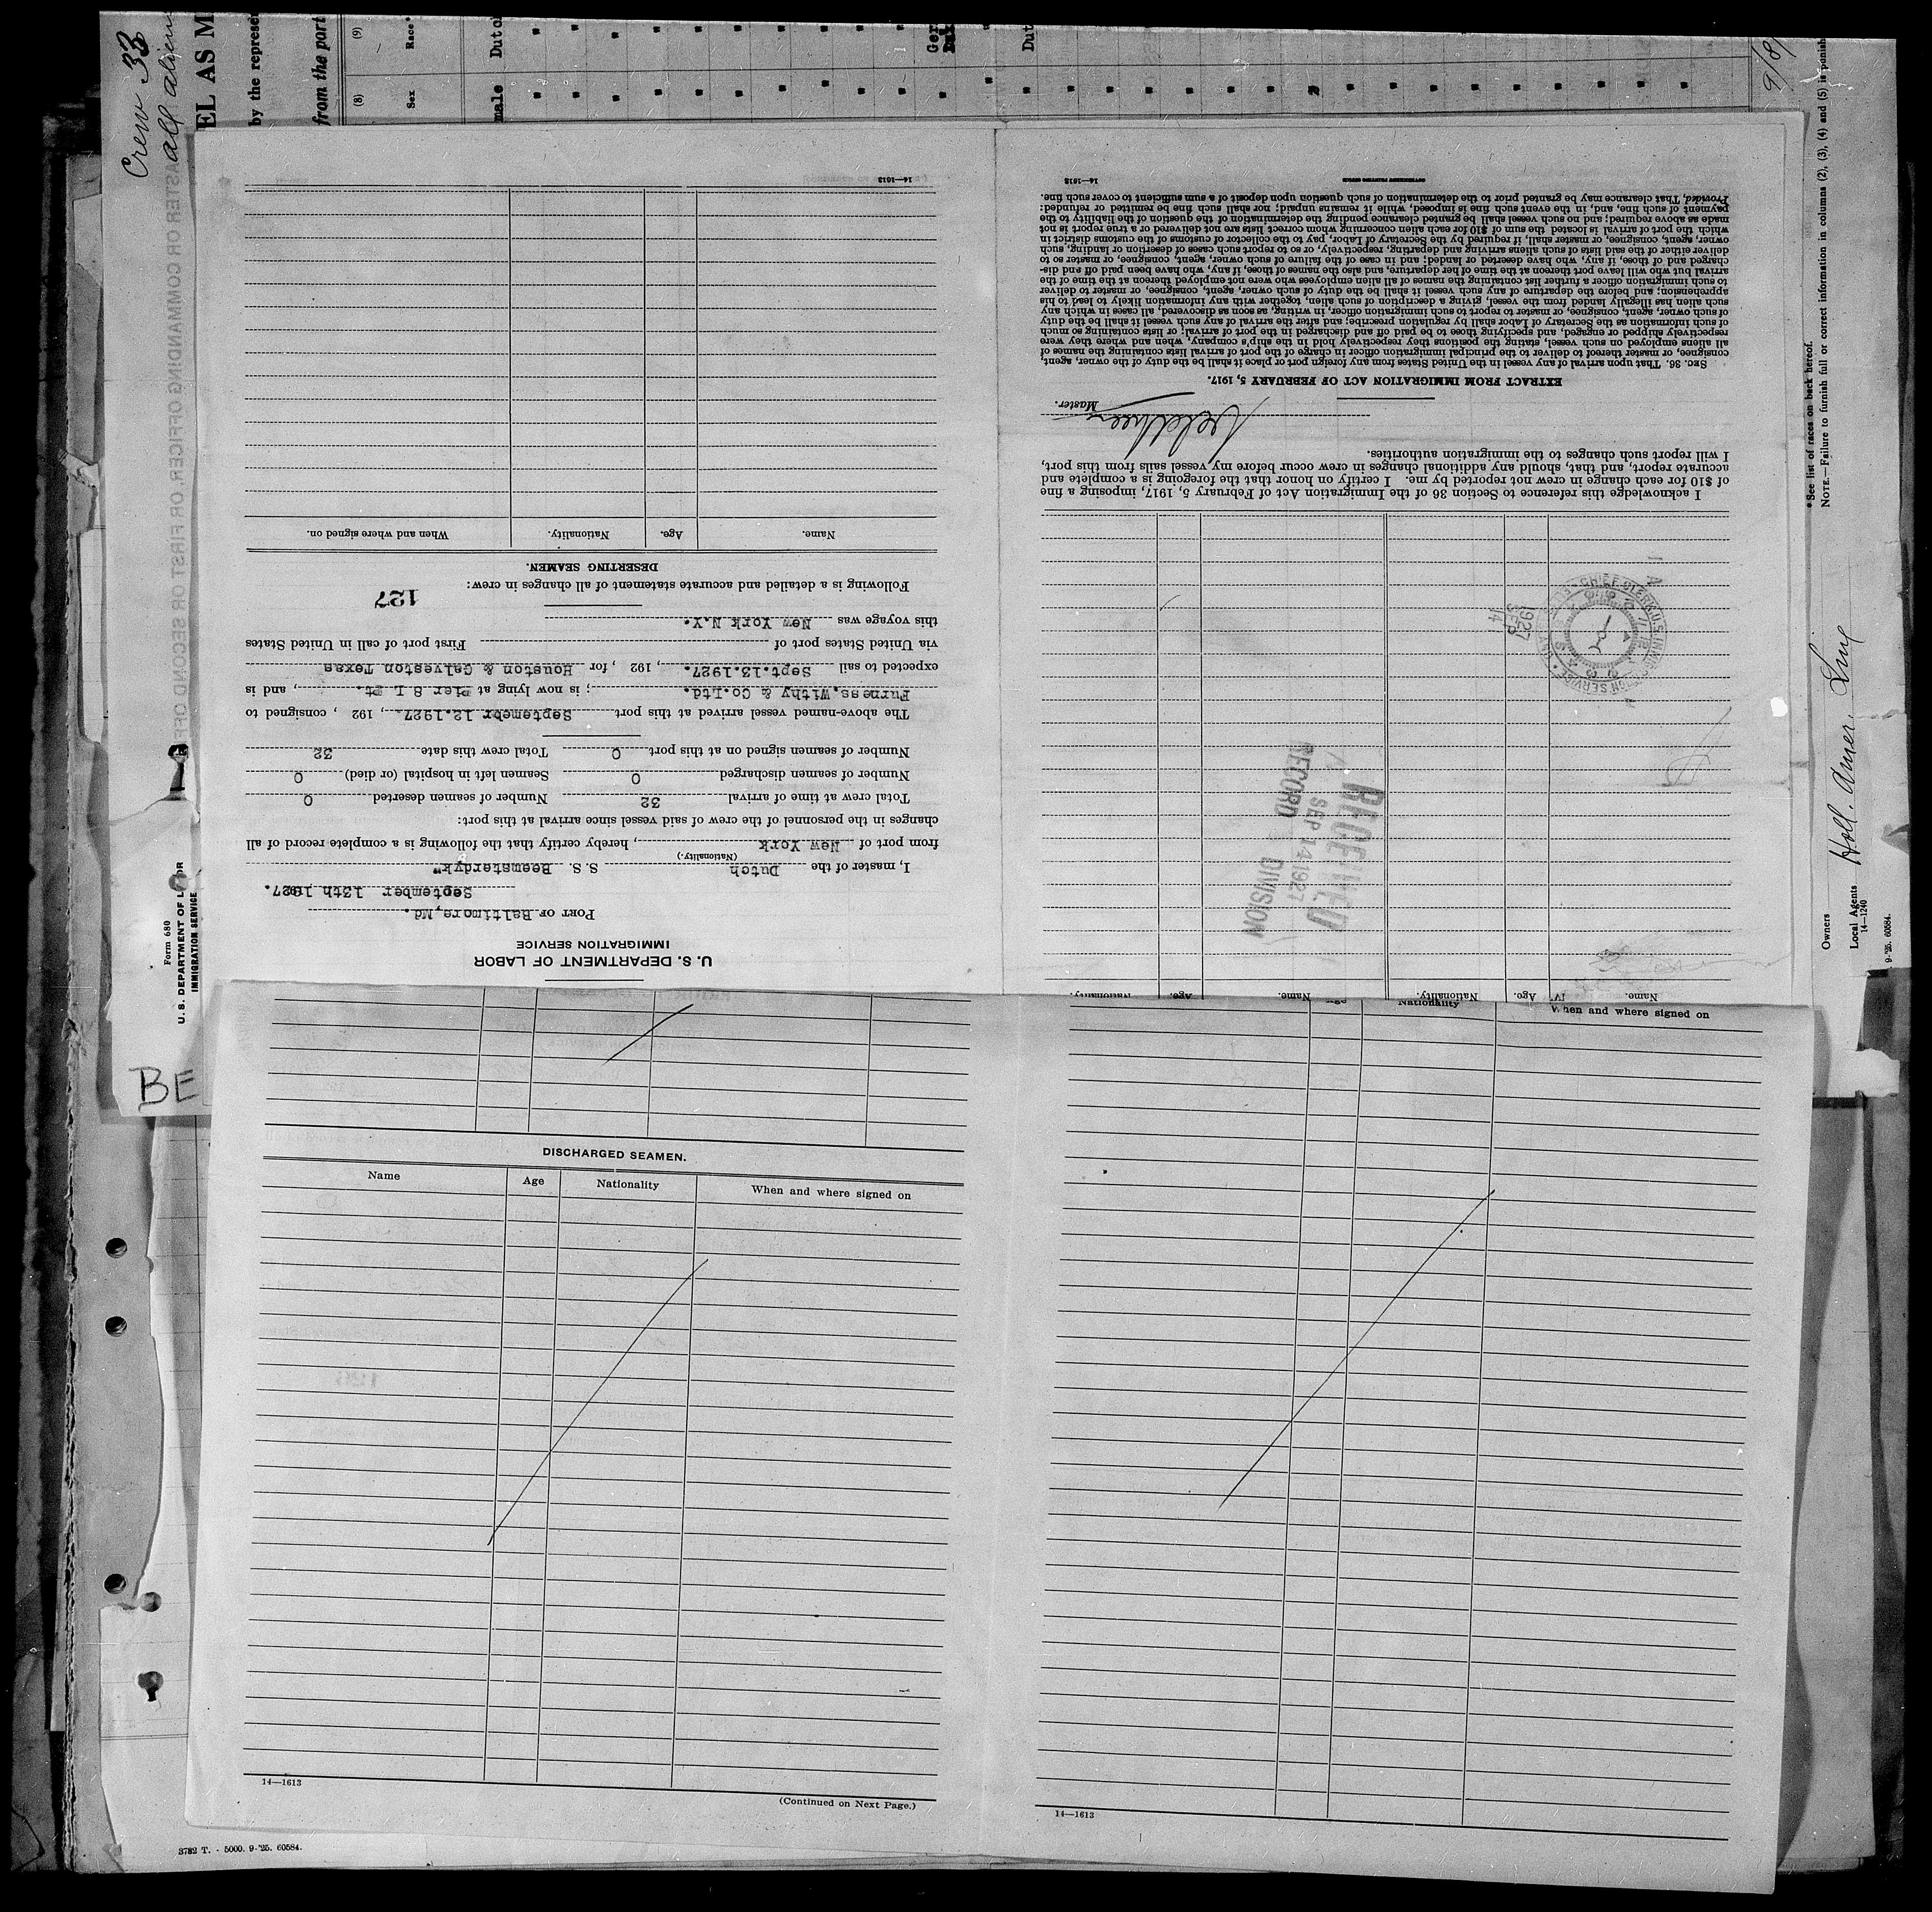 Crew 33
all aliens
EL AS M
by the represe
from the port
(9)
Race*
(8)
Sex
Dutch
male
Ger
Dut
9/8/
ASTER OR COMMANDING OFFICER, OR FIRST OR SECOND OF
Form 680
U. S. DEPARTMENT OF LABOR
IMMIGRATION SERVICE
BE
U. S. DEPARTMENT OF LABOR
IMMIGRATION SERVICE
PORT OF Baltimore, Md.
September 13th 1927.
I, master of the Dutch S. S. Beemsterdyk"
(Nationality.)
from port of New York, hereby certify that the following is a complete record of all
changes in the personnel of the crew of said vessel since arrival at this port:
Total crew at time of arrival 32 Number of seamen deserted 0
Number of seamen discharged 0 Seamen left in hospital (or died) 0
Number of seamen signed on at this port 0 Total crew this date 32
The above-named vessel arrived at this port Septembr 12.1927., 192 , consigned to
Furness.Withy & Co.Ltd.; is now lying at Pier 8 L Pt., and is
expected to sail Sept.13.1927., 192 , for Houston & Galveston Texas
via United States port of First port of call in United States
this voyage was New York N.Y.
127
Following is a detailed and accurate statement of all changes in crew:
DESERTING SEAMEN.
Name. Age. Nationality. When and where signed on.
14—1613
Name. Age. Nationality. Name. Age. Nationality.
RECEIVED
SEP 14 1927
RECORD DIVISION
CHIEF CLERK U.S. IMMIGRATION SERVICE
SEP 14
1927
I acknowledge this reference to Section 36 of the Immigration Act of February 5, 1917, imposing a fine
of $10 for each change in crew not reported by me. I certify on honor that the foregoing is a complete and
accurate report, and that, should any additional changes in crew occur before my vessel sails from this port,
I will report such changes to the immigration authorities.
Master.
EXTRACT FROM IMMIGRATION ACT OF FEBRUARY 5, 1917.
SEC. 36. That upon arrival of any vessel in the United States from any foreign port or place it shall be the duty of the owner, agent,
consignee, or master thereof to deliver to the principal immigration officer in charge of the port of arrival lists containing the names of
all aliens employed on such vessel, stating the positions they respectively hold in the ship's company, when and where they were
respectively shipped or engaged, and specifying those to be paid off and discharged in the port of arrival; or lists containing so much
of such information as the Secretary of Labor shall by regulation prescribe; and after the arrival of any such vessel it shall be the duty
of such owner, agent, consignee, or master to report to such immigration officer, in writing, as soon as discovered, all cases in which any
such alien has illegally landed from the vessel, giving a description of such alien, together with any information likely to lead to his
apprehension; and before the departure of any such vessel it shall be the duty of such owner, agent, consignee, or master to deliver
to such immigration officer a further list containing the names of all alien employees who were not employed thereon at the time of the
arrival but who will leave port thereon at the time of her departure, and also the names of those, if any, who have been paid off and dis-
charged and of those, if any, who have deserted or landed; and in case of the failure of such owner, agent, consignee, or master so to
deliver either of the said lists of such aliens arriving and departing, respectively, or so to report such cases of desertion or landing, such
owner, agent, consignee, or master shall, if required by the Secretary of Labor, pay to the collector of customs of the customs district in
which the port of arrival is located the sum of $10 for each alien concerning whom correct lists are not delivered or a true report is not
made as above required; and no such vessel shall be granted clearance pending the determination of the question of the liability to the
payment of such fine, and, in the event such fine is imposed, while it remains unpaid; nor shall such fine be remitted or refunded:
Provided, That clearance may be granted prior to the determination of such question upon deposit of a sum sufficient to cover such fine.
GOVERNMENT PRINTING OFFICE
14—1613
* See list of races on back hereof.
NOTE.—Failure to furnish full or correct information in columns (2), (3), (4) and (5) is punish
Owners
Local Agents Holl. Amer. Line
14—1240
9-'25. 60584.
Nationality When and where signed on
DISCHARGED SEAMEN.
Name Age Nationality When and where signed on
14—1613
(Continued on Next Page.)
14—1613
3782 T. - 5000. 9-'25. 60584.